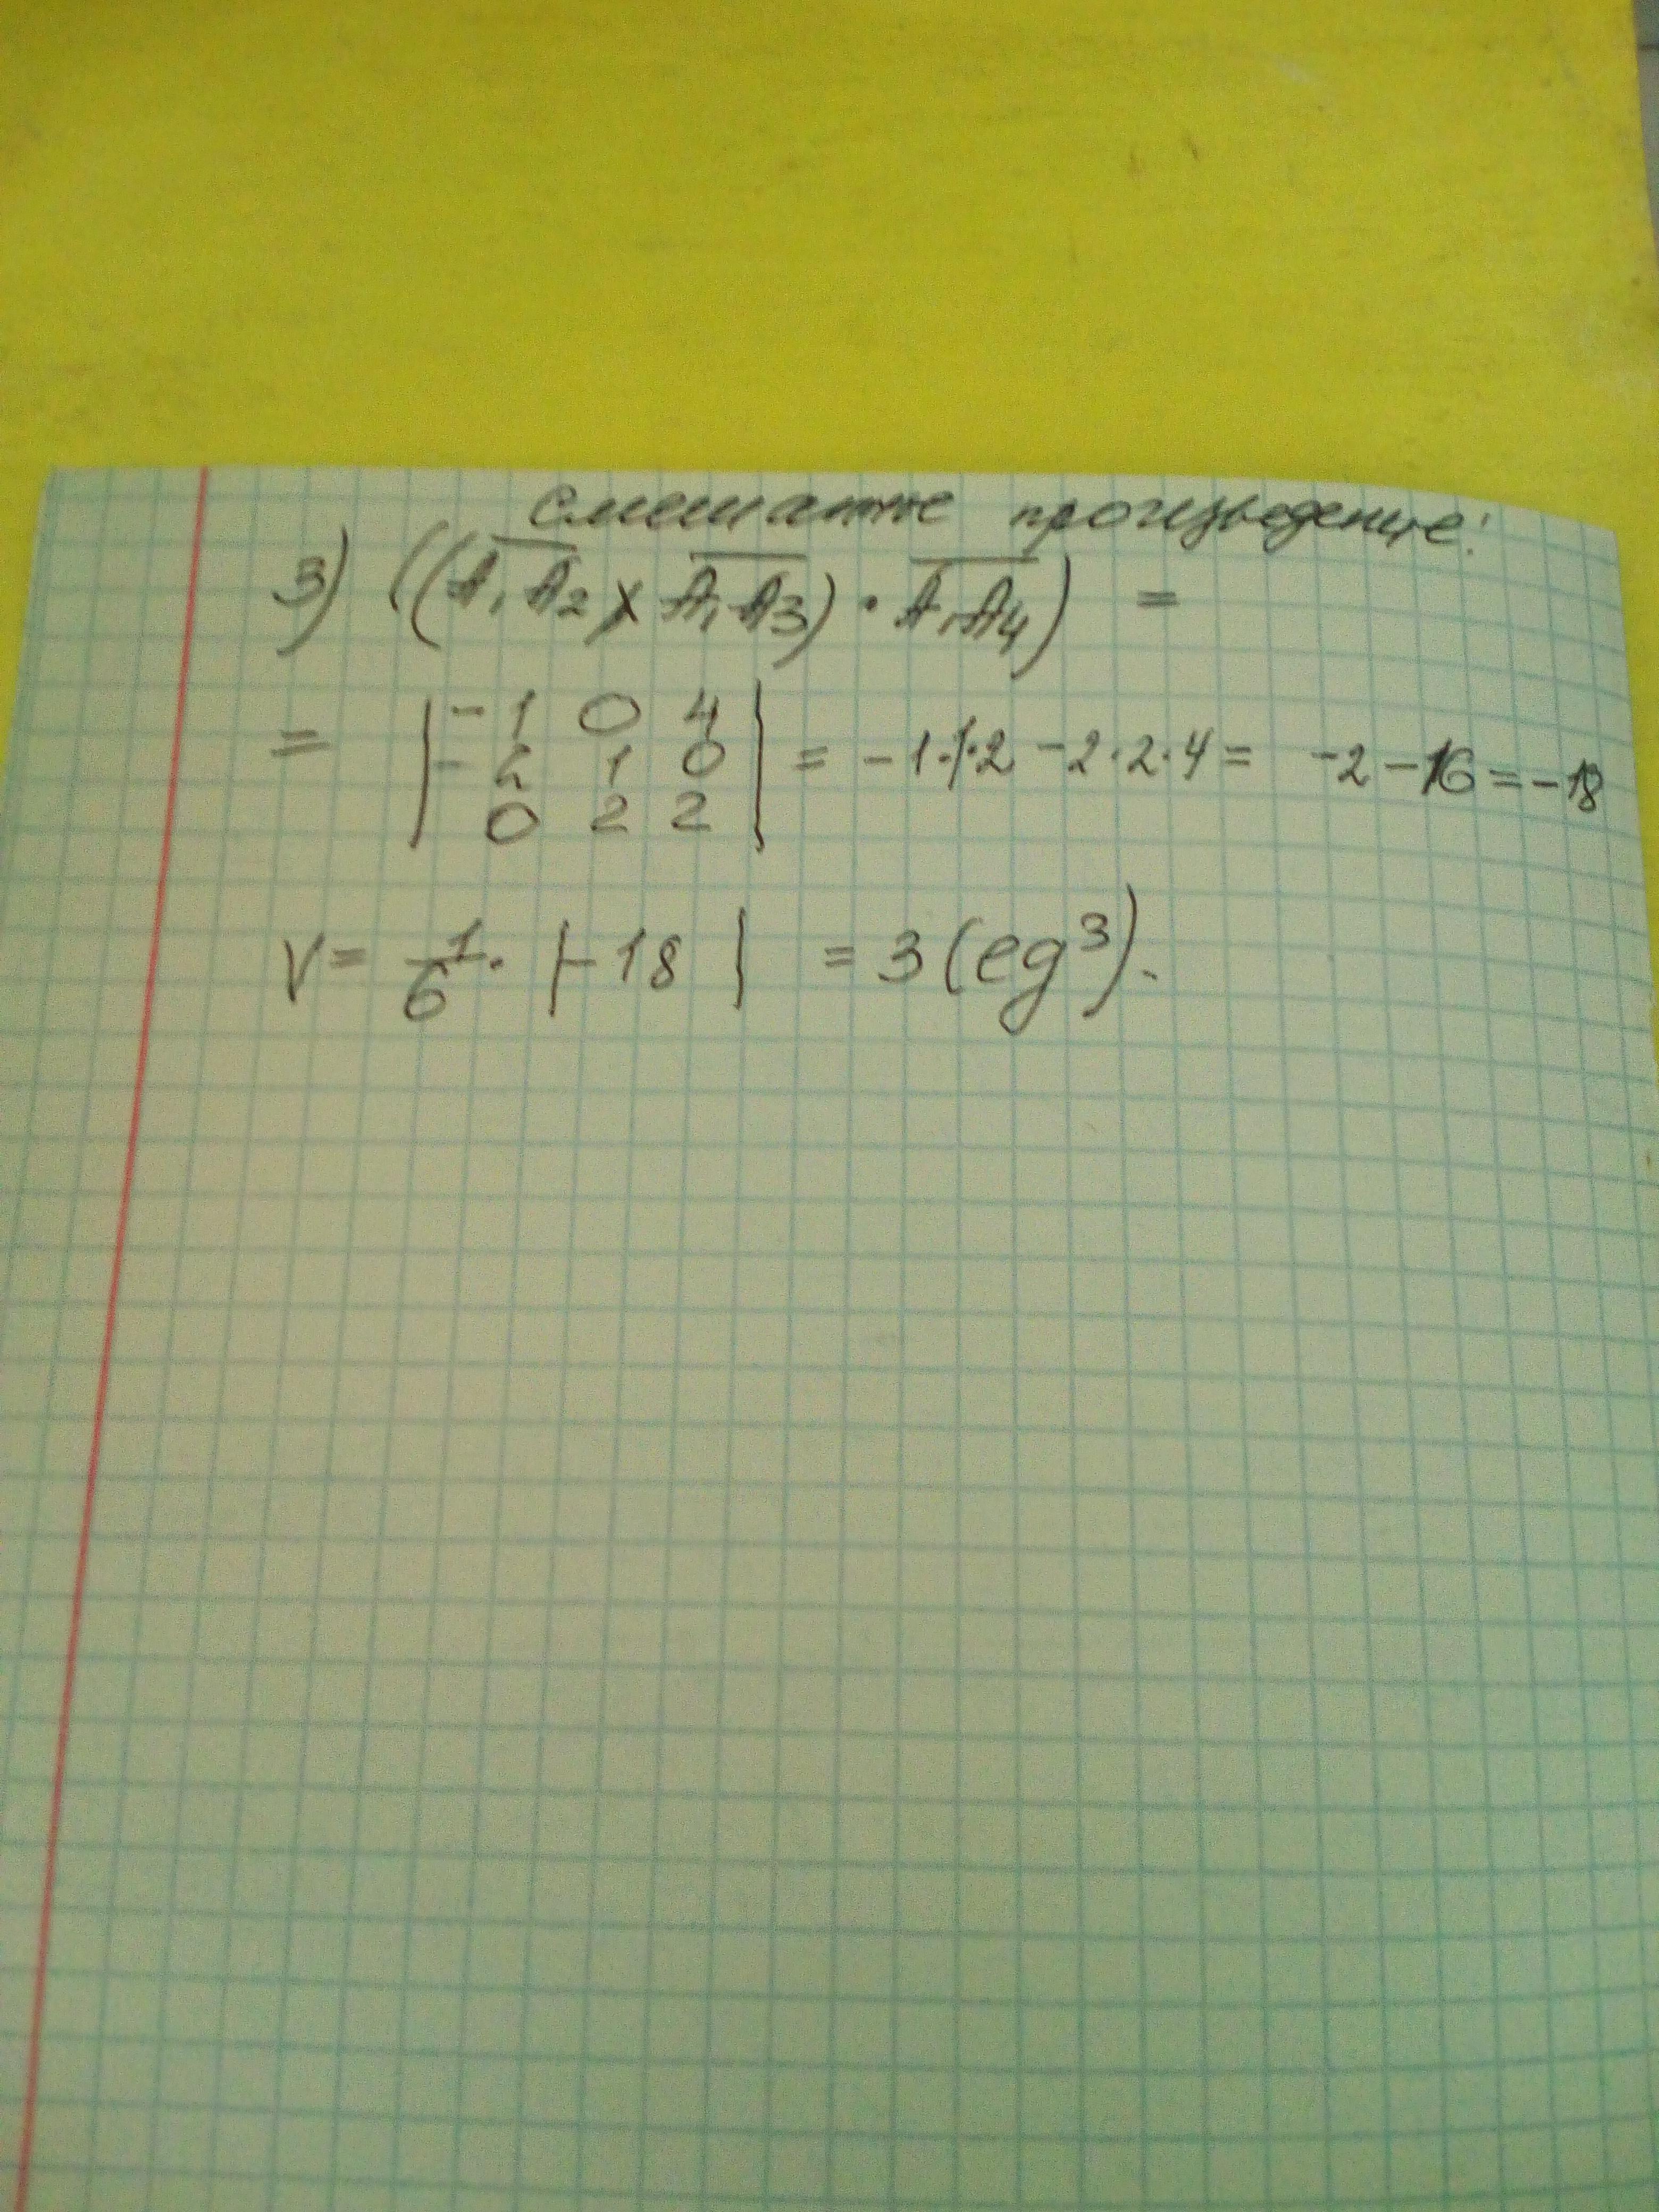 смешанное произведение:
3) ((A₁A₂ x A₁A₃) · A₁A₄) =
= | -1 0 4 |
| -2 1 0 | = -1·1·2 -2·2·4 = -2 -16 = -18
| 0 2 2 |
V = 1/6 · |-18| = 3 (ед³).